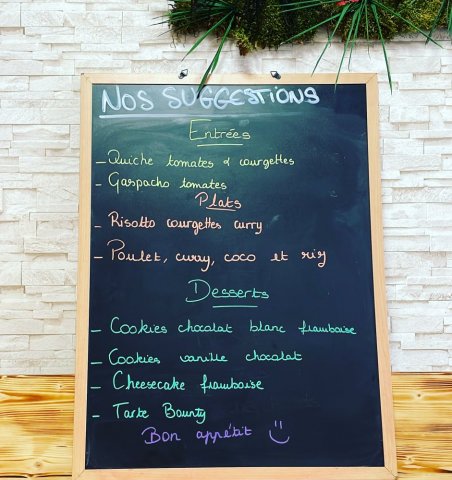 NOS SUGGESTIONS
Entrées
- Quiche tomates & courgettes
- Gaspacho tomates
Plats
- Risotto courgettes curry
- Poulet, curry, coco et riz
Desserts
- Cookies chocolat blanc framboise
- Cookies vanille chocolat
- Cheesecake framboise
- Tarte Bounty
Bon appétit :)